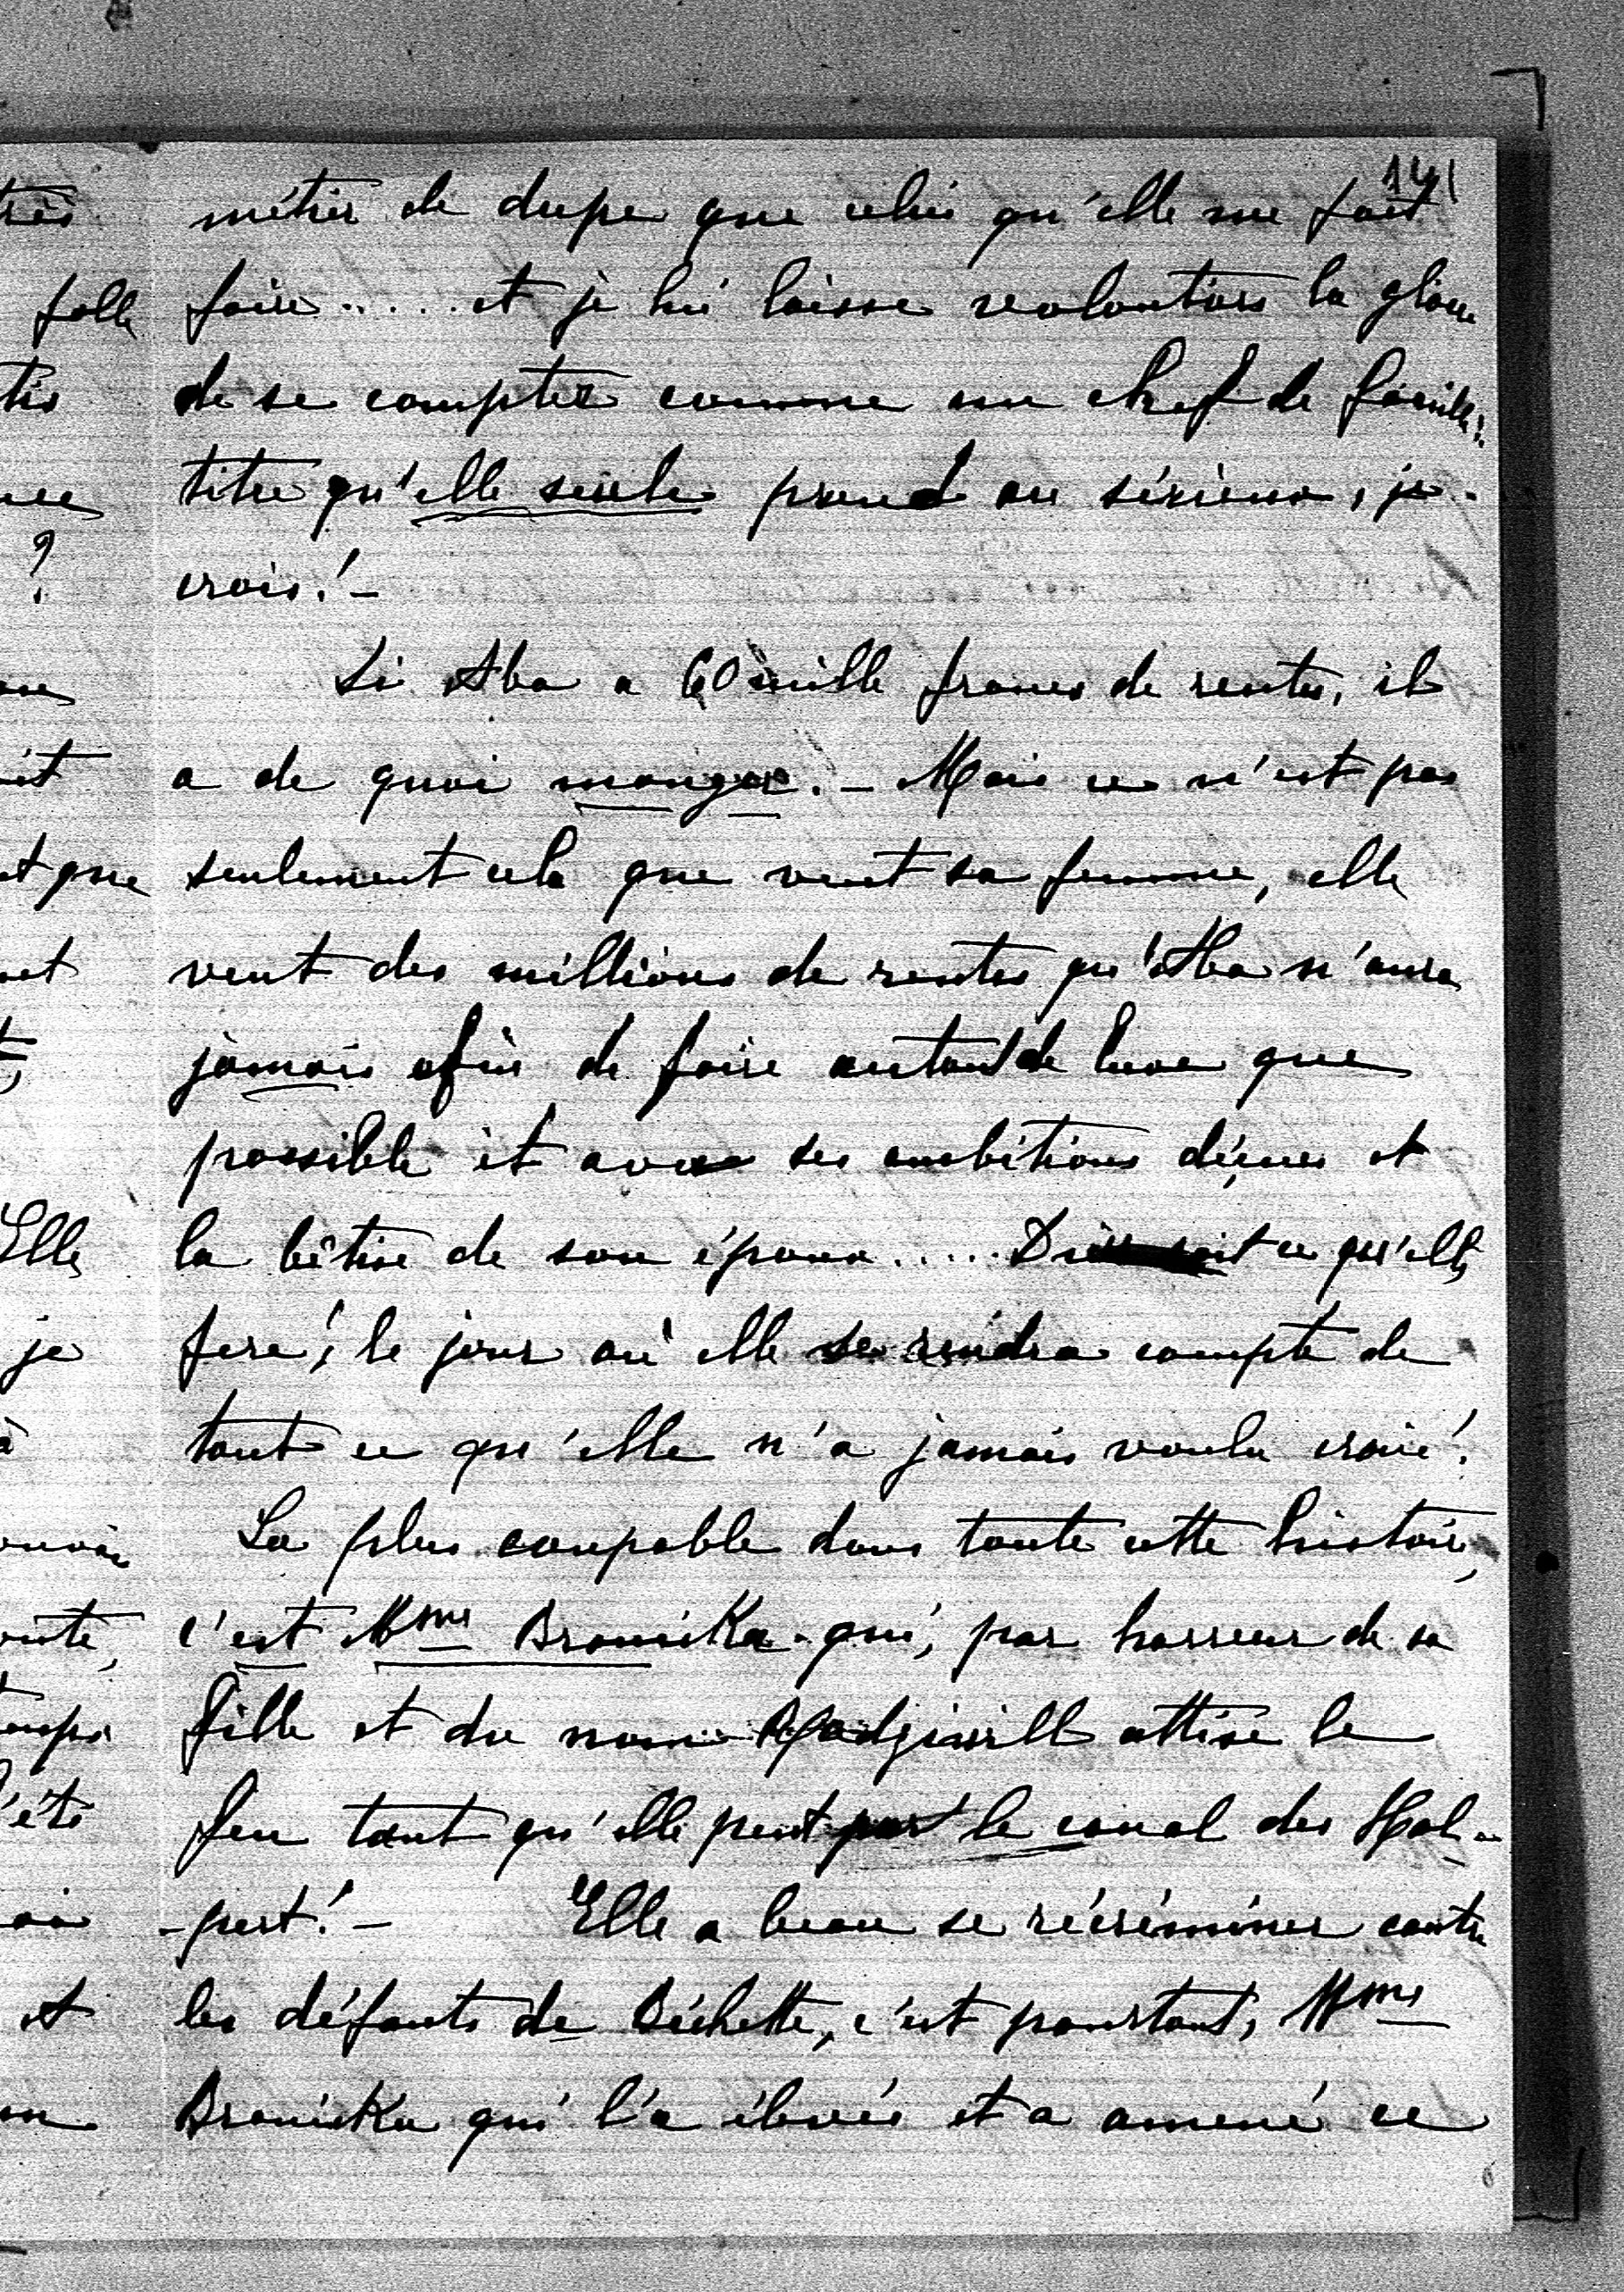 141
métier de dupe que celui qu'elle me fait
faire ..... et je lui laisse volontiers la gloire
de se compter comme un chef de famille :
titre qu'elle seule prend au sérieux, je
crois ! –
Si Aba a 60 mille francs de rentes, il
a de quoi manger. – Mais ce n'est pas
seulement cela que veut sa femme, elle
veut des millions de rentes qu'Aba n'aura
jamais afin de faire autant de luxe que
possible et avec ses ambitions déçues et
la bêtise de son époux ..... Dieu sait ce qu'elle
fera, le jour où elle se rendra compte de
tout ce qu'elle n'a jamais voulu croire !
La plus coupable dans toute cette histoire,
c'est Mme Branicka qui, par horreur de sa
fille et du nom Radziwill attise le
feu tant qu'elle peut par le canal des Hal-
-pert ! – Elle a beau se récriminer contre
les défauts de Bichette, c'est pourtant, Mme
Branicka qui l'a élevée et a amené ce